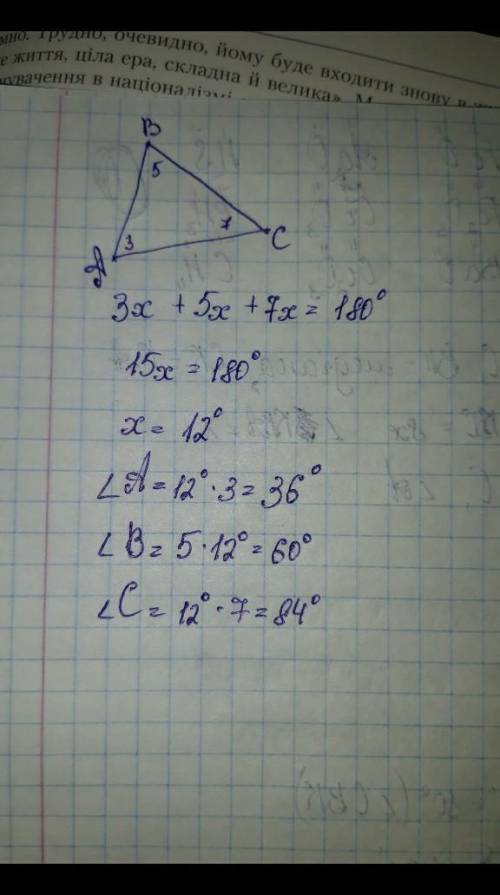 очевидно, йому буде входити знову в
життя, ціла ера, складна й велика».
в націоналізмі
B
5
7
C
3
A
3x + 5x + 7x = 180°
15x = 180°
x = 12°
∠A = 12° · 3 = 36°
∠B = 5 · 12° = 60°
∠C = 12° · 7 = 84°